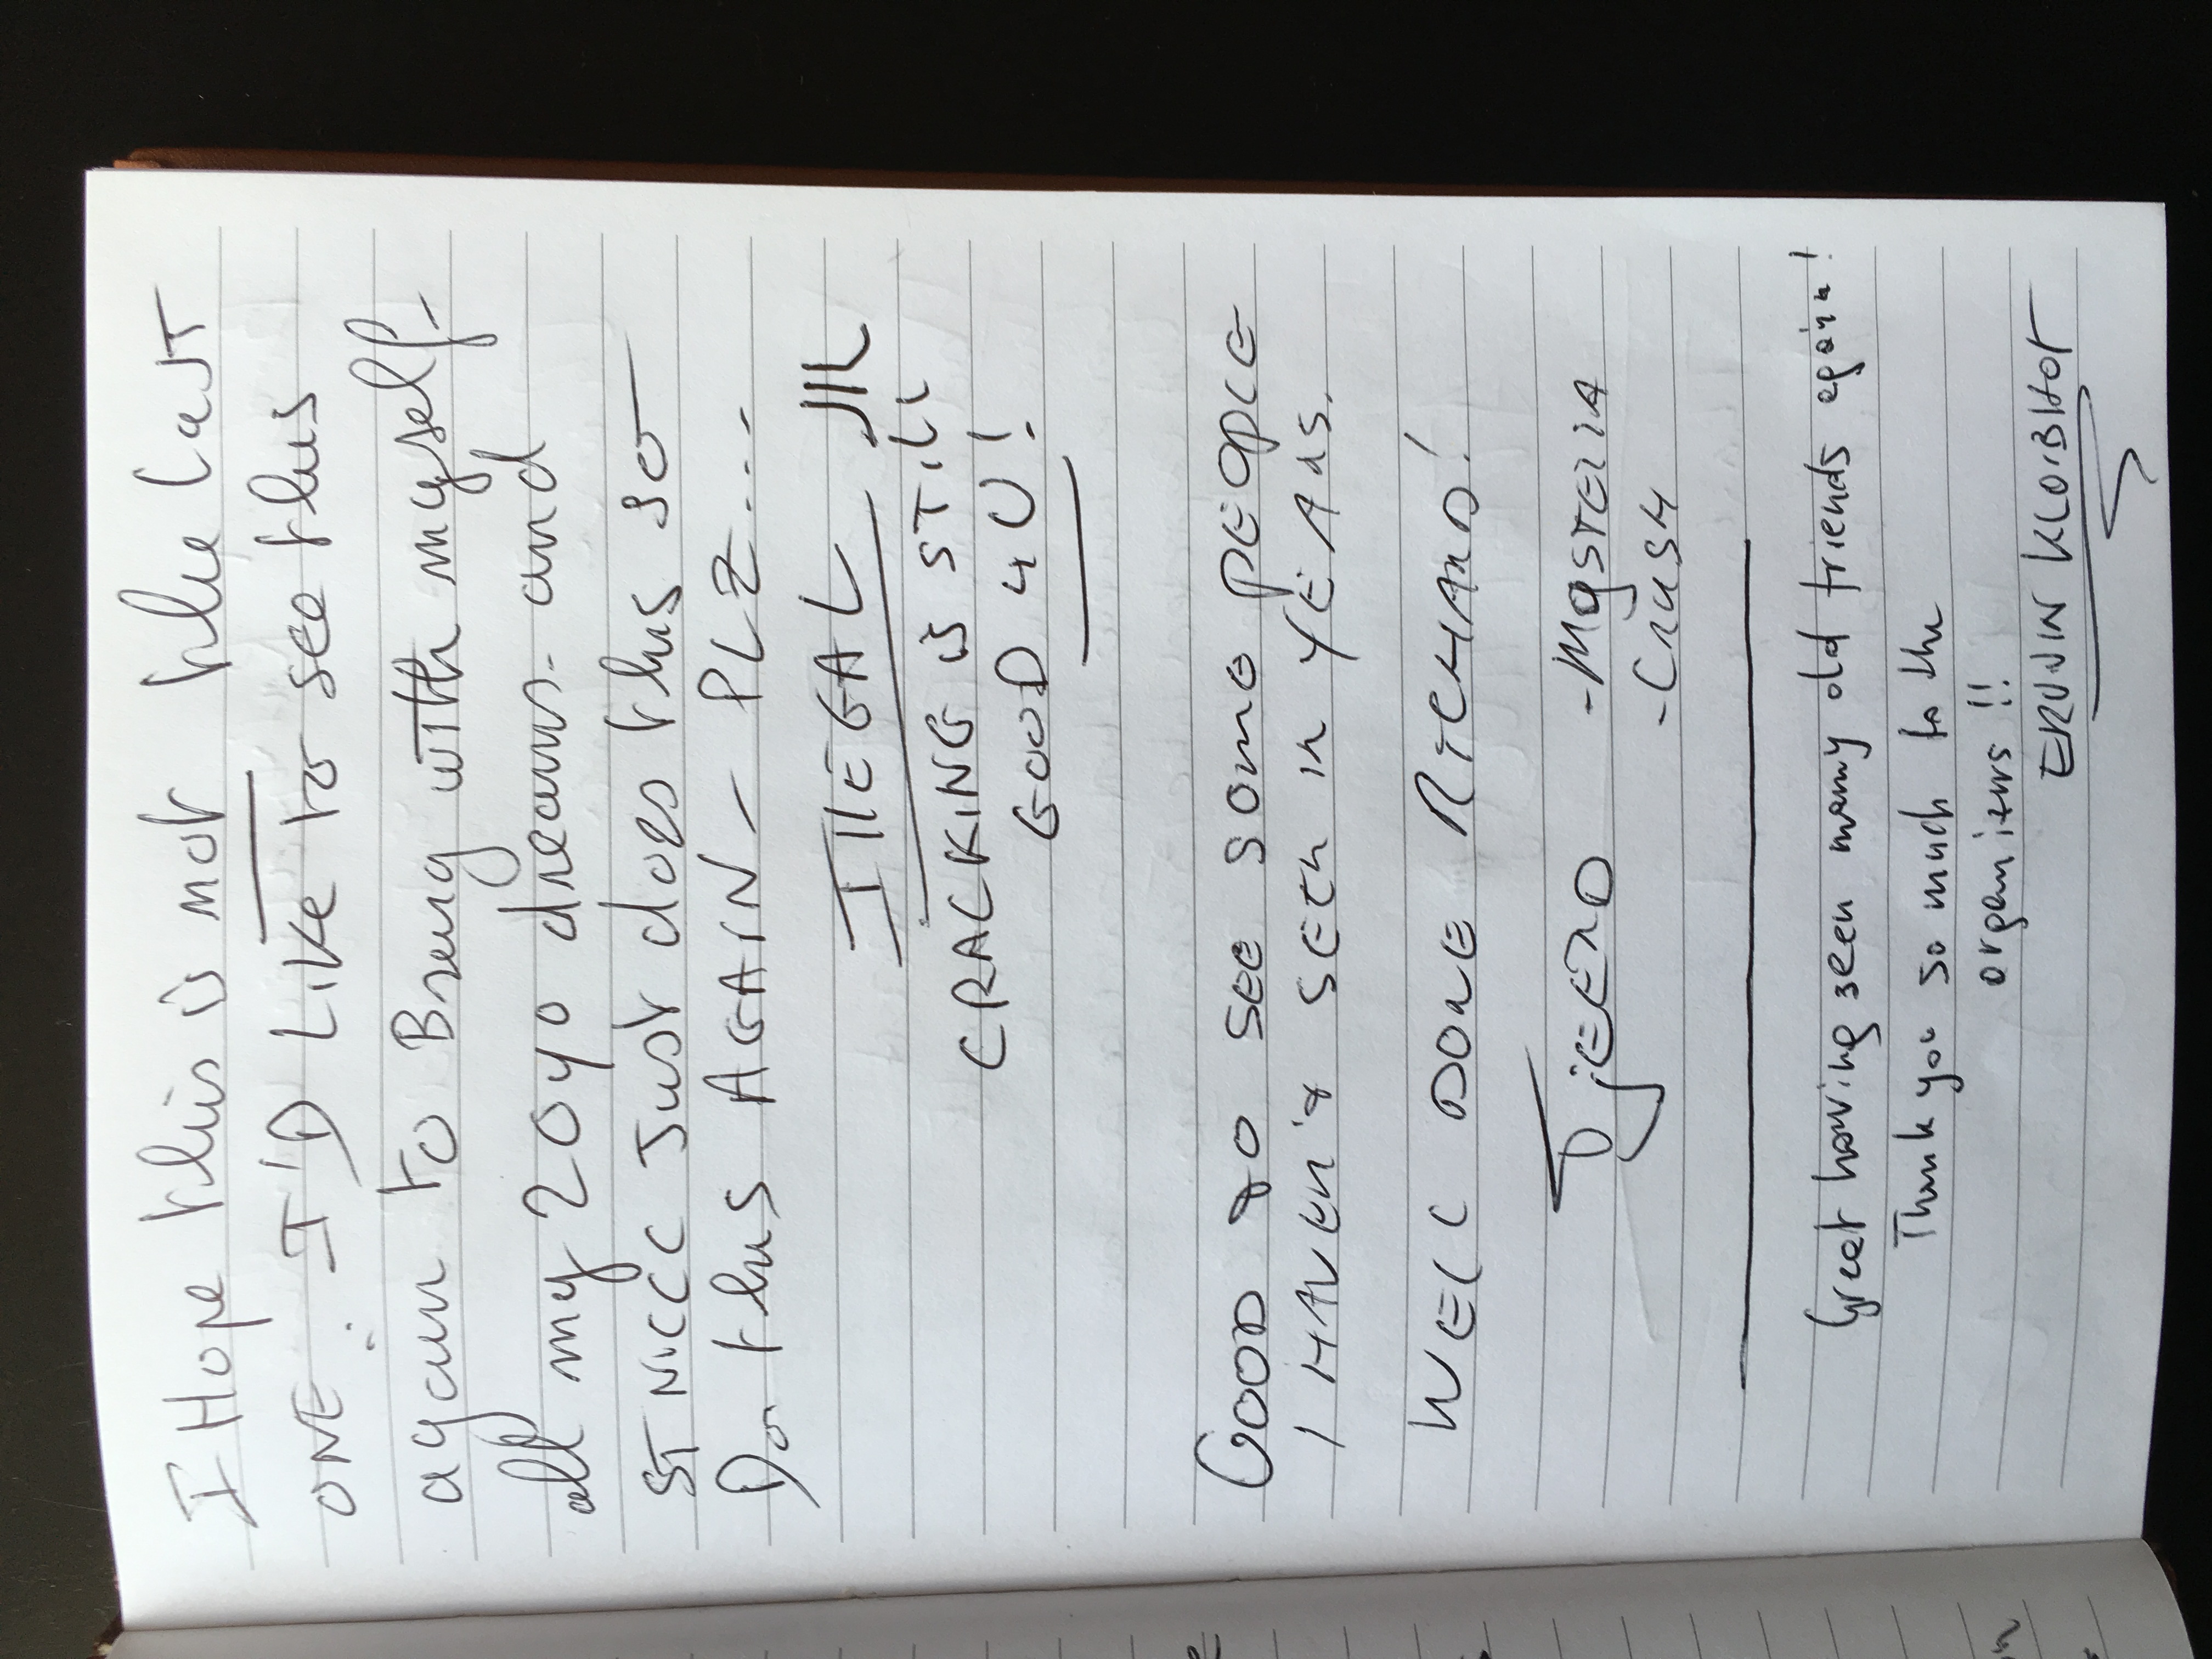 I Hope this is not the last
ONE. I'D Like to see this
again to Bring with myself
all my 20yo dreams. and
STNICC Just does this so
Do this AGAIN - PLZ...
IllEGAL
CRACKING is STill
GOOD 4 U!
GOOD TO SEE SOME PEOPLE
I HAVEN'T SEEN IN YEARS.
WELL DONE RICHARD!
DJEERO -MYSTERIA
-CRUSH
Great having seen many old friends again!
Thank you so much to the
organizers!!
ERWIN KLOIBHOF